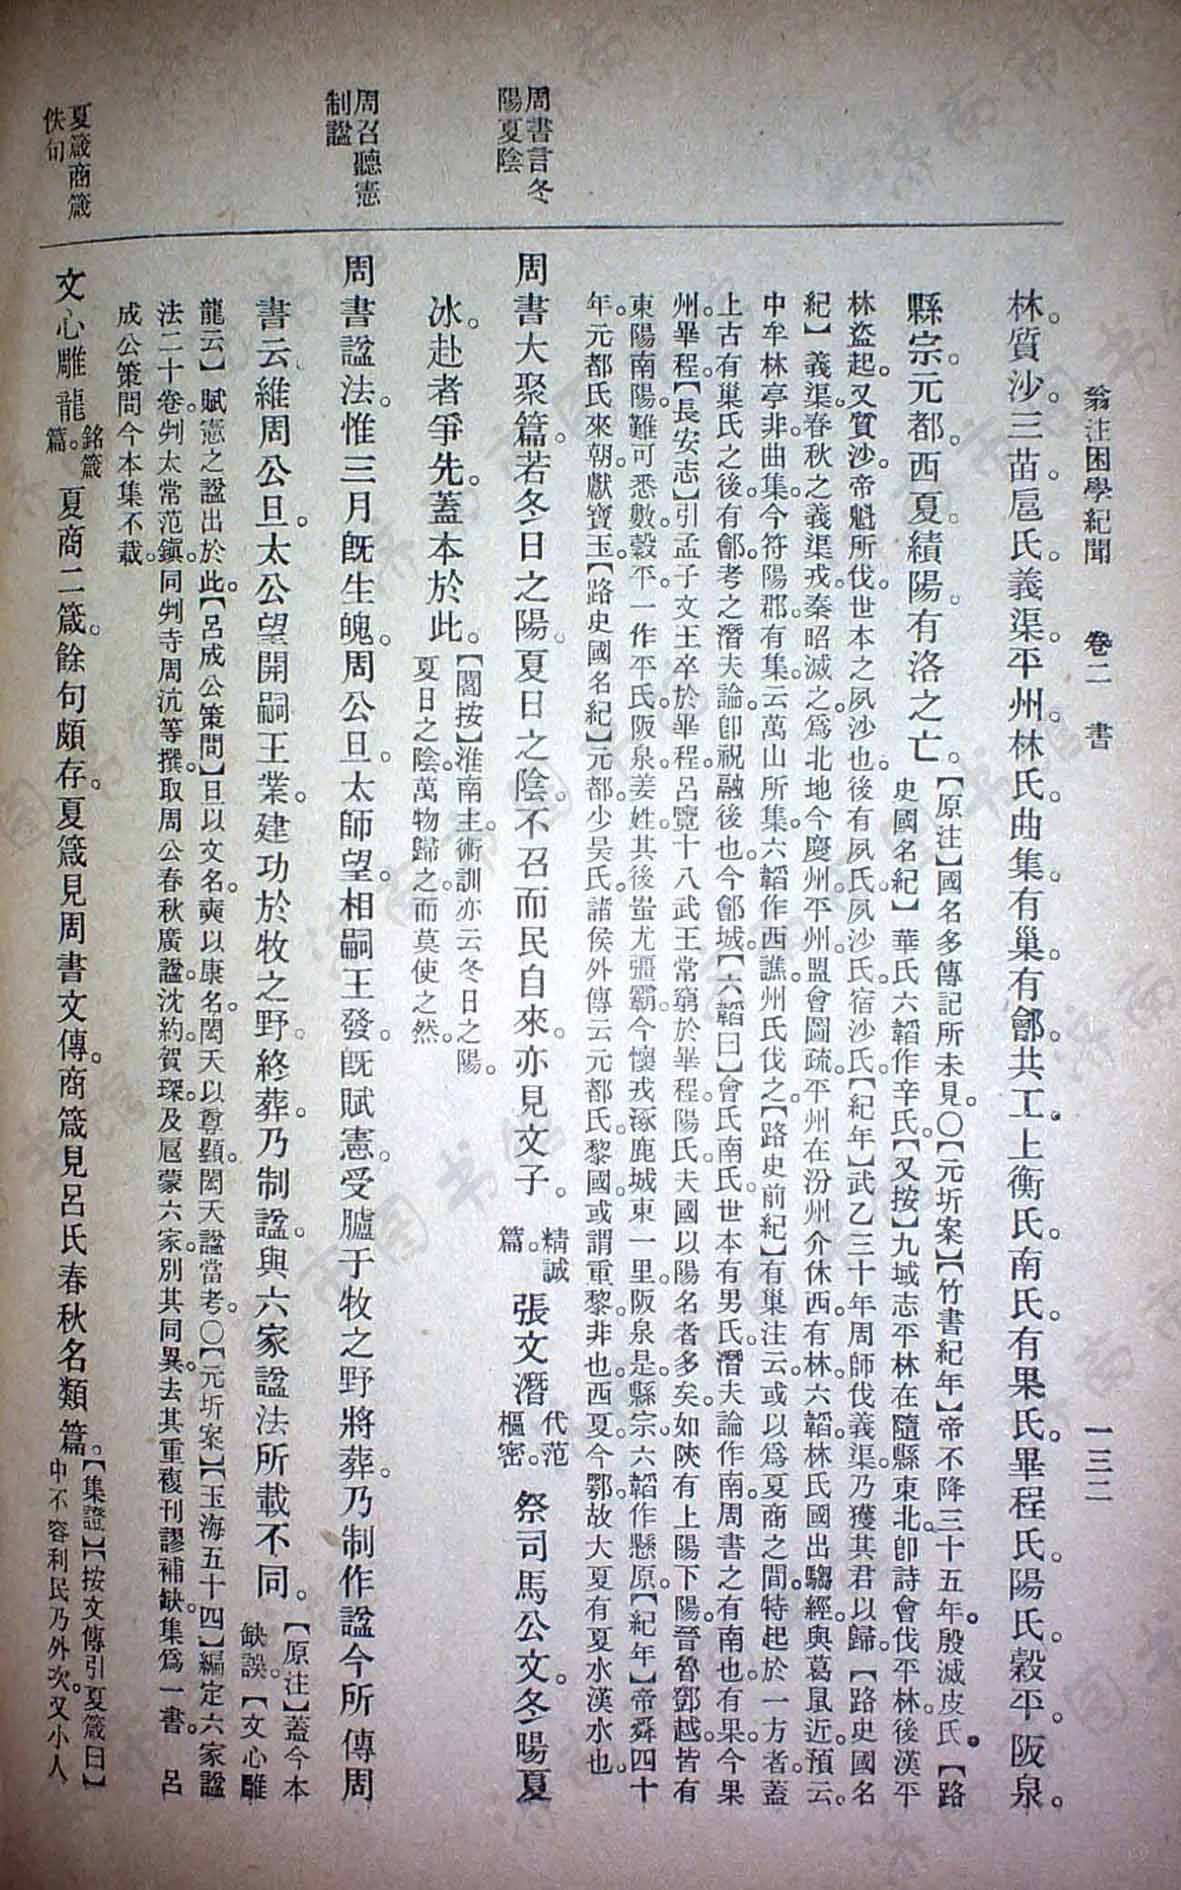 翁注困學紀聞　卷二　書　一三二
林。質沙。三苗。扈氏。義渠。平州。林氏。曲集。有巢。有鄶。共工。上衡氏。南氏。有果氏。畢程氏。陽氏。穀平。阪泉。
縣宗。元都。西夏。績陽。有洛之亡。
【原注】國名多傳記所未見。〇【元圻案】【竹書紀年】帝不降三十五年。殷滅皮氏。【路
史國名紀】華氏六韜作辛氏。【又按】九域志平林在隨縣東北。卽詩會伐平林。後漢平
林盜起。又質沙。帝魁所伐。世本之夙沙也。後有夙氏。夙沙氏。宿沙氏。【紀年】武乙三十年周師伐義渠。乃獲其君以歸。【路史國名
紀】義渠。春秋之義渠戎。秦昭滅之。爲北地今慶州。平州。盟會圖疏。平州在汾州介休西。有林。六韜。林氏國出騶。經與葛䖟近。預云。
中牟林亭。非。曲集。今符陽郡。有集。云萬山所集。六韜作西譙。州氏伐之。【路史前紀】有巢注云。或以爲夏商之間。特起於一方者。蓋
上古有巢氏之後。有鄶。考之潛夫論。卽祝融後也。今鄶城。【六韜曰】會氏南氏。世本有男氏。潛夫論作南。周書之有南也。有果。今果
州。畢程。【長安志】引孟子文王卒於畢程。呂覽十八武王常窮於畢程。陽氏。夫國以陽名者多矣。如陝有上陽下陽。晉魯鄧越。皆有
東陽南陽。難可悉數。穀平。一作平氏。阪泉。姜姓。其後蚩尤彊霸。今懷戎涿鹿城東一里。阪泉是。縣宗。六韜作懸原。【紀年】帝舜四十
年。元都氏來朝。獻寶玉。【路史國名紀】元都。少昊氏。諸侯外傳云元都氏。黎國。或謂重黎。非也。西夏。今鄂。故大夏有夏水漢水也。
周書言冬
陽夏陰
周書大聚篇。若冬日之陽。夏日之陰。不召而民自來。亦見文子。精誠篇。張文潛代范樞密。祭司馬公文。冬暘夏
冰。赴者爭先。蓋本於此。
【閻按】淮南主術訓亦云冬日之陽。
夏日之陰。萬物歸之。而莫使之然。
周召聽憲
制諡
周書諡法。惟三月旣生魄。周公旦。太師望。相嗣王發。旣賦憲。受臚于牧之野。將葬。乃制作諡。今所傳周
書云。維周公旦。太公望。開嗣王業。建功於牧之野。終葬。乃制諡。與六家諡法所載不同。
【原注】蓋今本
缺誤。【文心雕
龍云】賦憲之諡出於此。【呂成公策問】旦以文名。奭以康名。閎天以尊顯。閎天諡當考。〇【元圻案】【玉海五十四】編定六家諡
法二十卷。判太常范鎭。同判寺周沆等撰。取周公春秋廣諡。沈約。賀琛。及扈蒙六家。別其同異。去其重複。刊謬補缺。集爲一書。呂
成公策問今本集不載。
夏箴商箴
佚句
文心雕龍。銘箴篇。夏商二箴。餘句頗存。夏箴見周書文傳。商箴見呂氏春秋名類篇。
【集證】【按文傳引夏箴曰】
中不容利民乃外次。又小人